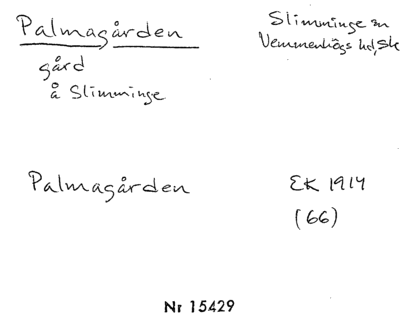 Palmagården
gård
å Slimminge
Slimminge sn
Vemmenhögs hd, Sk
Palmagården
EK 1914
(66)
Nr 15429